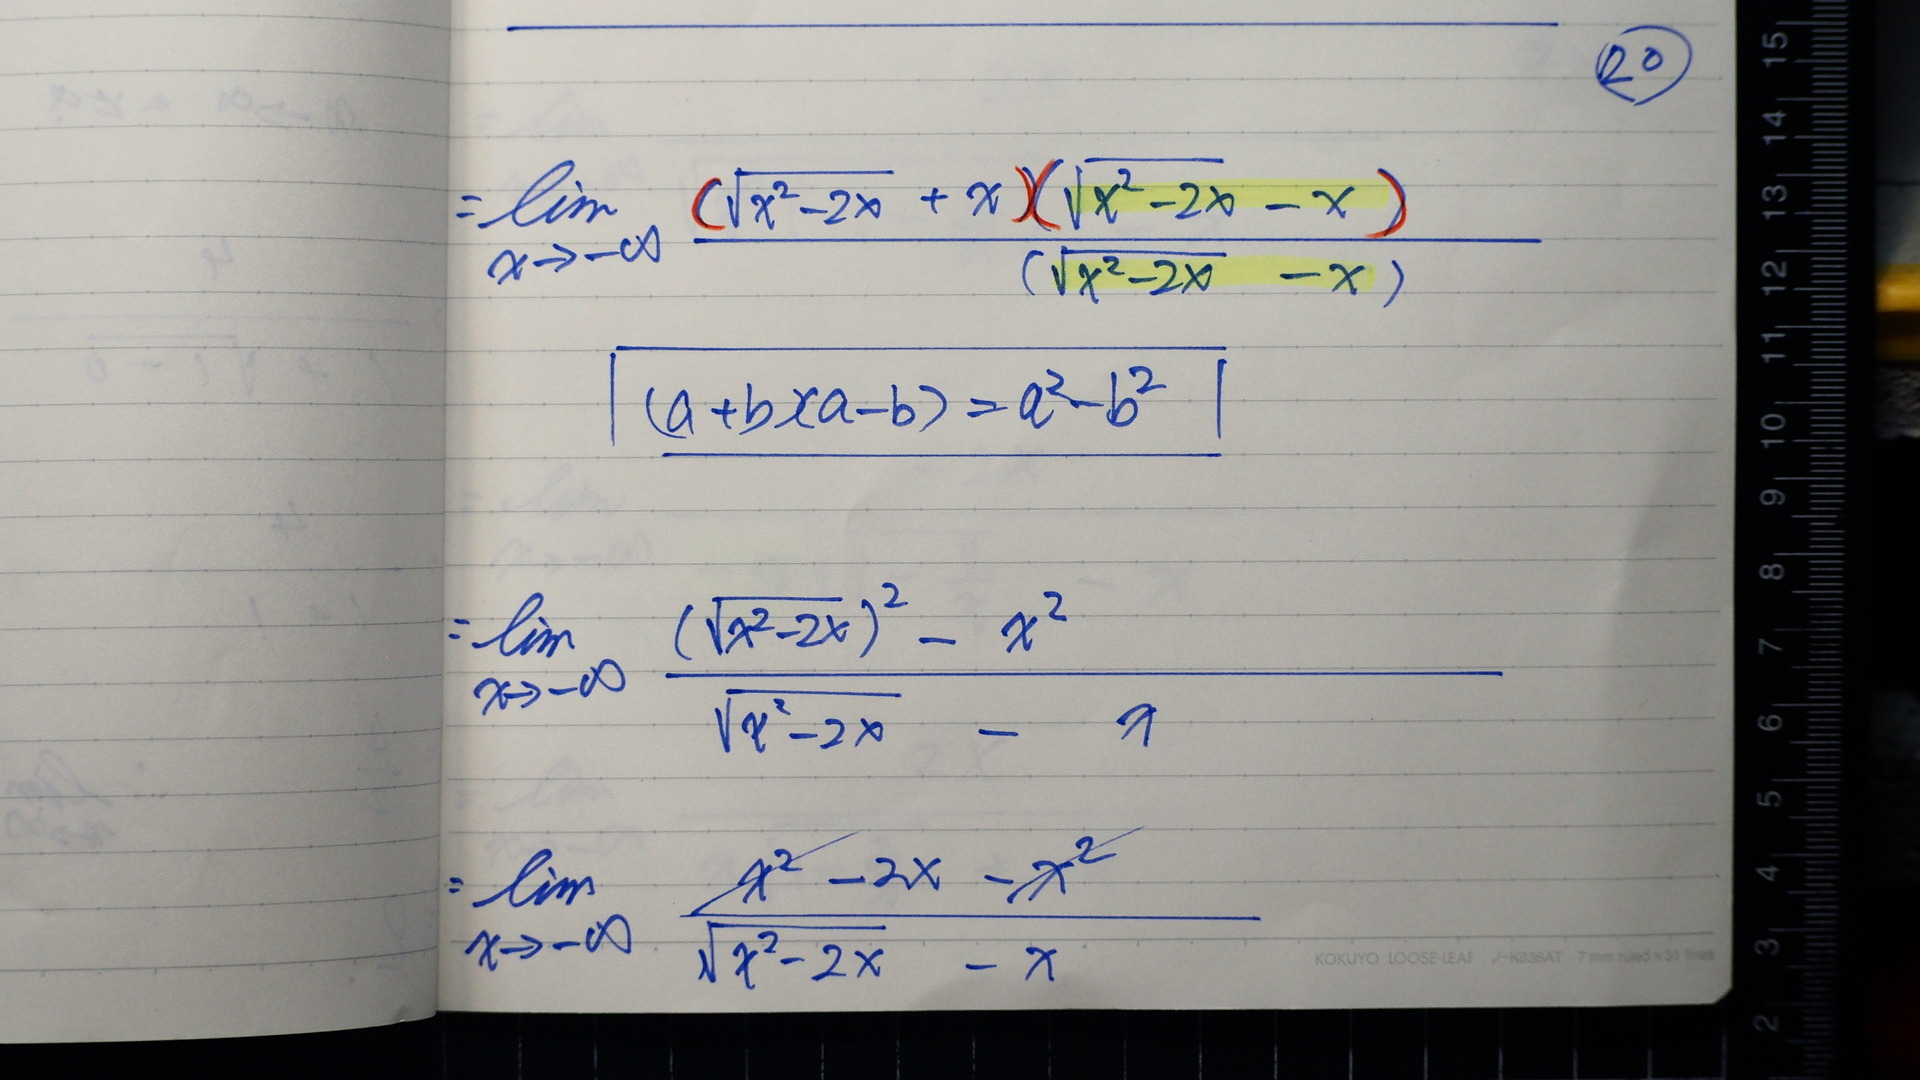 20
= lim x→-∞ (√x²-2x + x)(√x²-2x - x)
(√x²-2x - x)
(a+b)(a-b) = a²-b²
= lim x→-∞ (√x²-2x)² - x²
√x²-2x - x
= lim x→-∞ x² -2x -x²
√x²-2x - x
KOKUYO LOOSE-LEAF ノ-K836AT 7 mm ruled×31 lines
15
14
13
12
11
10
9
8
7
6
5
4
3
2